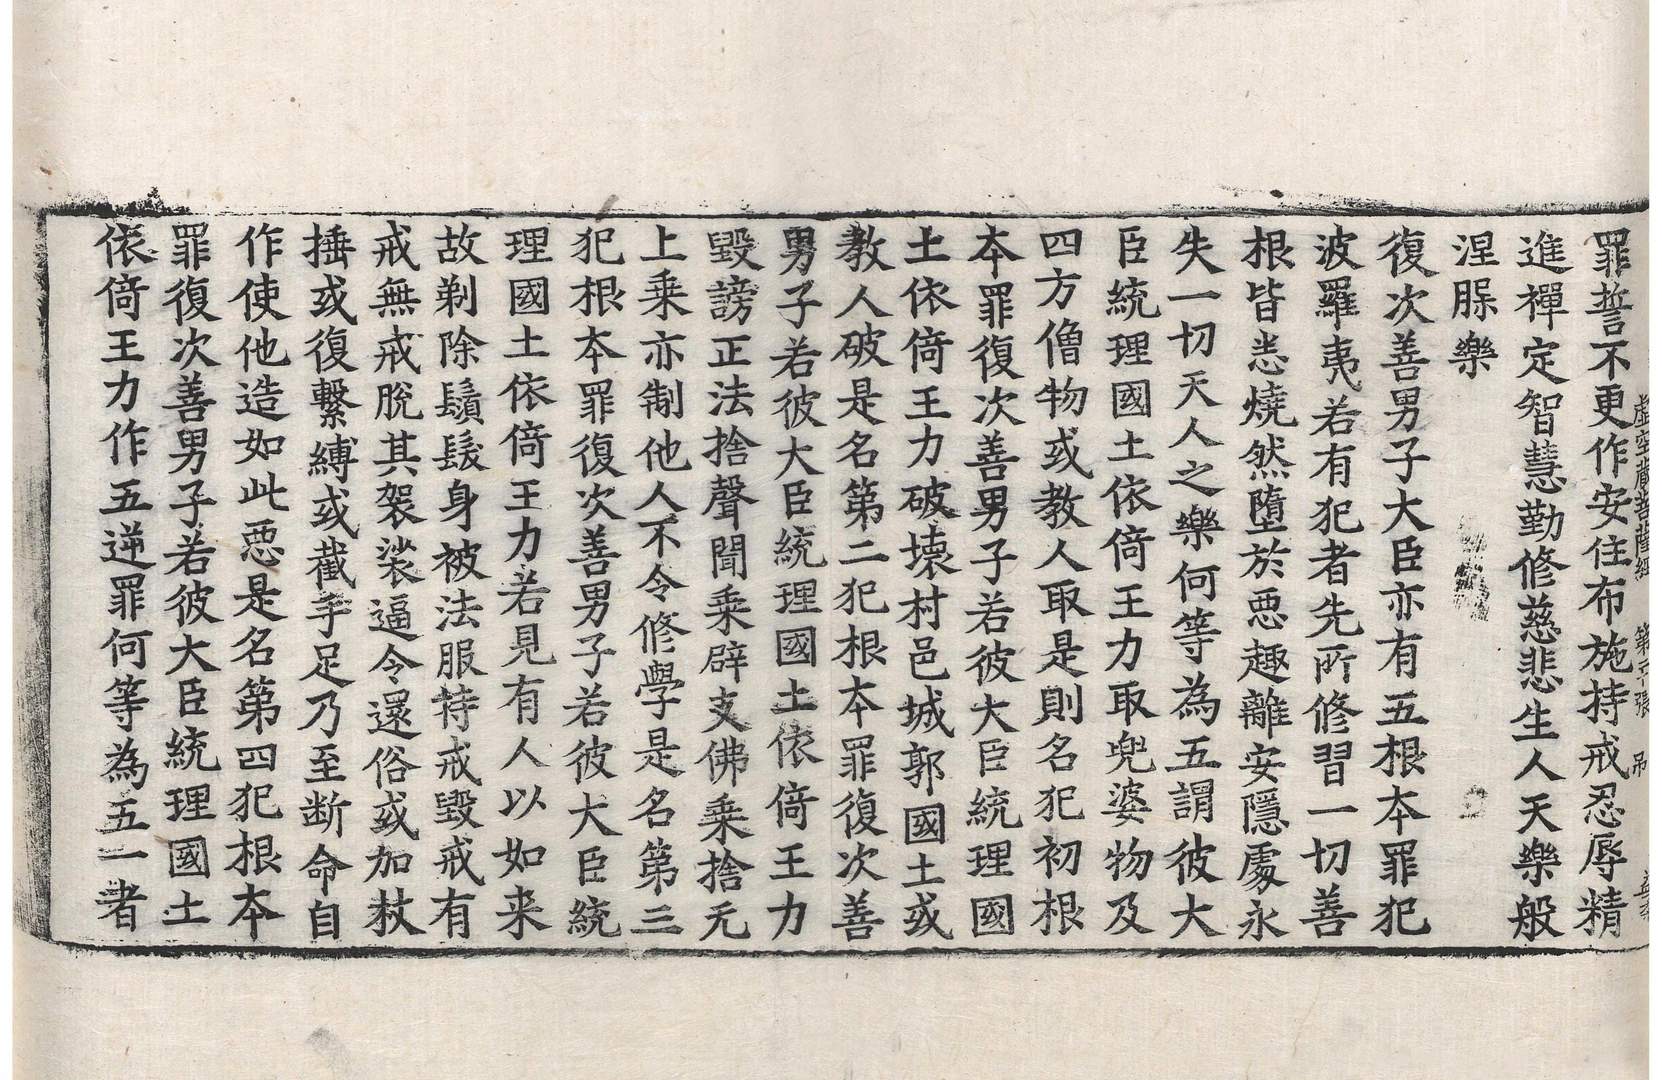 虚空藏菩薩經 第 張
罪誓不更作安住布施持戒忍辱精
進禪定智慧勤修慈悲生人天樂般
涅脲樂
復次善男子大臣亦有五根本罪犯
波羅夷若有犯者先所修習一切善
根皆悉燒然墮於惡趣離安隱處永
失一切天人之樂何等為五謂彼大
臣統理國土依倚王力取兜婆物及
四方僧物或教人取是則名犯初根
本罪復次善男子若彼大臣統理國
土依倚王力破壞村邑城郭國土或
教人破是名第二犯根本罪復次善
男子若彼大臣統理國土依倚王力
毀謗正法捨聲聞乘辟支佛乘捨无
上乘亦制他人不令修學是名第三
犯根本罪復次善男子若彼大臣統
理國土依倚王力若見有人以如来
故剃除鬚髮身被法服持戒毀戒有
戒無戒脫其袈裟逼令還俗或加杖
捶或復繫縛或截手足乃至断命自
作使他造如此惡是名第四犯根本
罪復次善男子若彼大臣統理國土
依倚王力作五逆罪何等為五一者